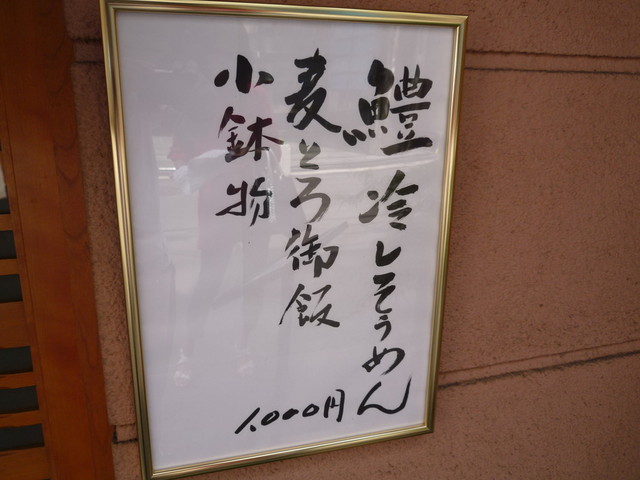 鱧冷しそうめん
麦とろ御飯
小鉢物
1,000円